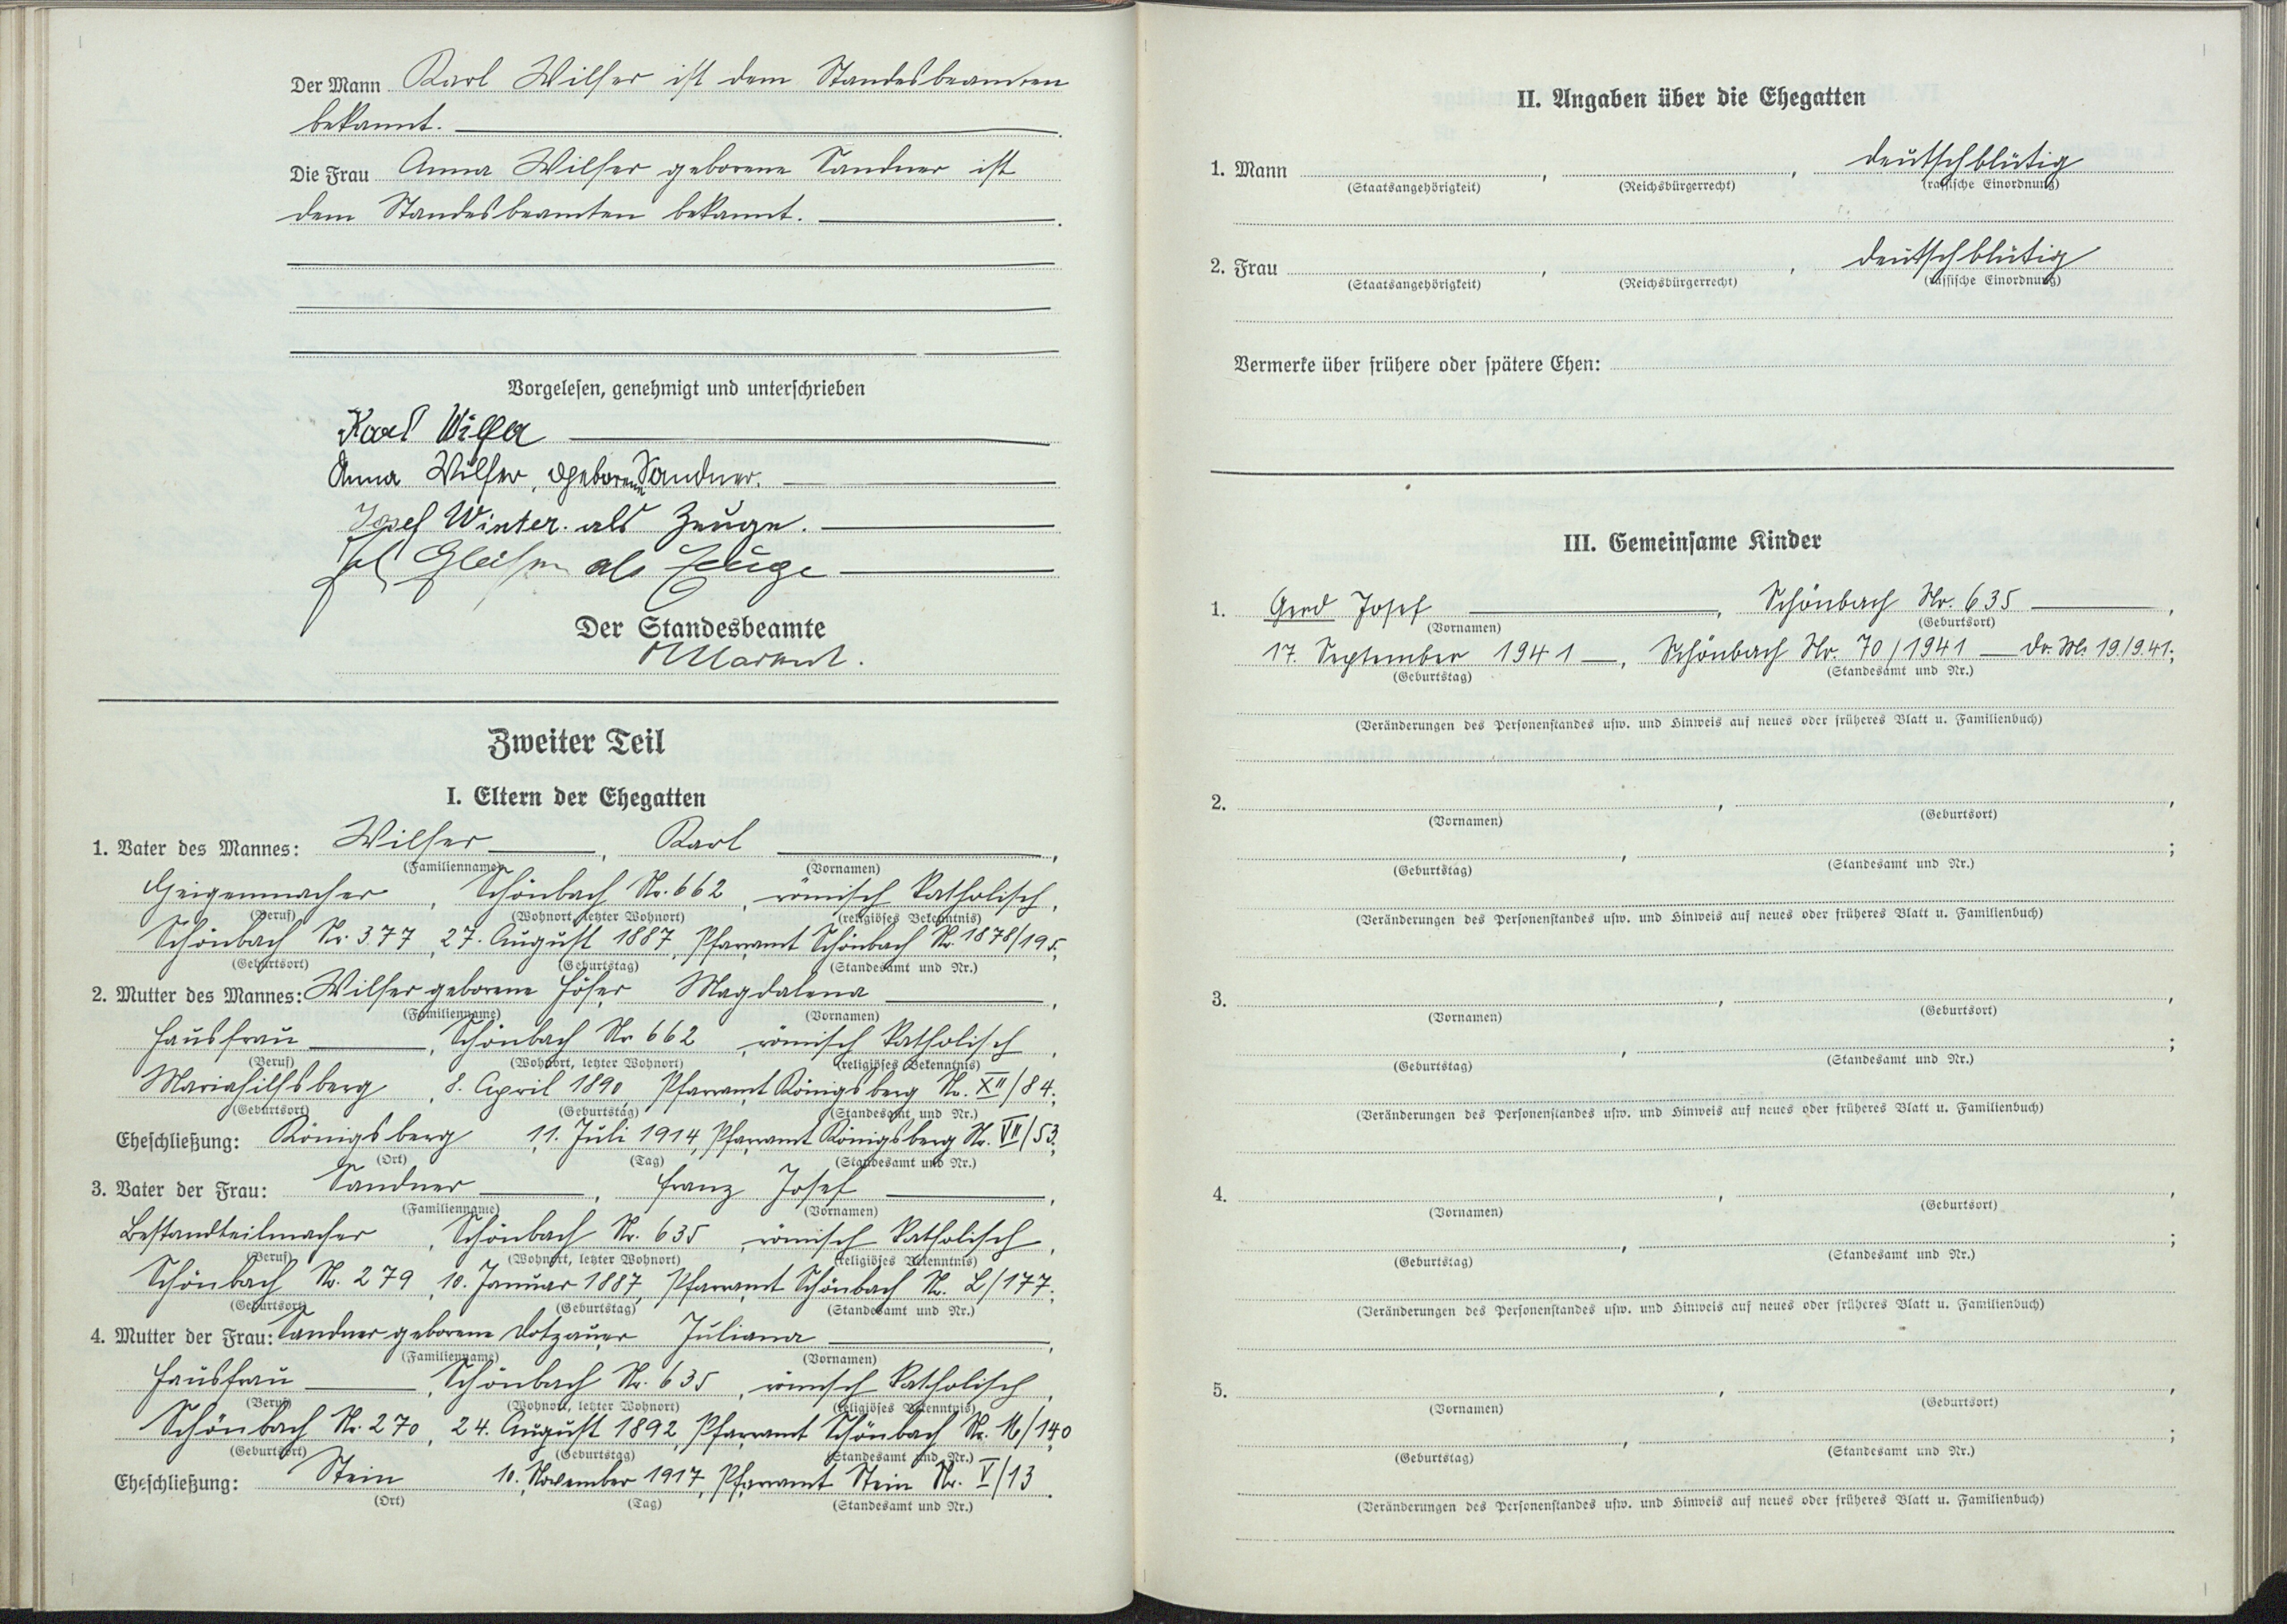 Der Mann Karl Wilfer ist dem Standesbeamten
bekannt.
Die Frau Anna Wilfer geborene Sandner ist
dem Standesbeamten bekannt.
Vorgelesen, genehmigt und unterschrieben
Karl Wilfer
Anna Wilfer, geborene Sandner.
Josef Winter als Zeuge.
als Zeuge
Der Standesbeamte
Zweiter Teil
I. Eltern der Ehegatten
1. Vater des Mannes: Wilfer, Karl,
(Familienname) (Vornamen)
Geigenmacher, Schönbach Nr. 662, römisch katholisch,
(Beruf) (Wohnort, letzter Wohnort) (religiöses Bekenntnis)
Schönbach Nr. 377, 27. August 1887, Pfarramt Schönbach Nr. 1878/195;
(Geburtsort) (Geburtstag) (Standesamt und Nr.)
2. Mutter des Mannes: Wilfer geborene Höfer, Magdalena,
(Familienname) (Vornamen)
Hausfrau, Schönbach Nr 662, römisch katholisch,
(Beruf) (Wohnort, letzter Wohnort) (religiöses Bekenntnis)
Mariahilfsberg, 8. April 1890, Pfarramt Königsberg Nr. XII/84;
(Geburtsort) (Geburtstag) (Standesamt und Nr.)
Eheschließung: Königsberg, 11. Juli 1914, Pfarramt Königsberg Nr. VII/53.
(Ort) (Tag) (Standesamt und Nr.)
3. Vater der Frau: Sandner, Franz Josef,
(Familienname) (Vornamen)
Bestandteilmacher, Schönbach Nr. 635, römisch katholisch,
(Beruf) (Wohnort, letzter Wohnort) (religiöses Bekenntnis)
Schönbach Nr. 279, 10. Januar 1887, Pfarramt Schönbach Nr. L/177;
(Geburtsort) (Geburtstag) (Standesamt und Nr.)
4. Mutter der Frau: Sandner geborene Dotzauer, Juliana,
(Familienname) (Vornamen)
Hausfrau, Schönbach Nr. 635, römisch katholisch,
(Beruf) (Wohnort, letzter Wohnort) (religiöses Bekenntnis)
Schönbach Nr. 270, 24. August 1892, Pfarramt Schönbach Nr. M/140
(Geburtsort) (Geburtstag) (Standesamt und Nr.)
Eheschließung: Stein, 10. November 1917, Pfarramt Stein Nr. V/13.
(Ort) (Tag) (Standesamt und Nr.)
II. Angaben über die Ehegatten
1. Mann , , deutschblütig
(Staatsangehörigkeit) (Reichsbürgerrecht) (rassische Einordnung)
2. Frau , , deutschblütig
(Staatsangehörigkeit) (Reichsbürgerrecht) (rassische Einordnung)
Vermerke über frühere oder spätere Ehen:
III. Gemeinsame Kinder
1. Gerd Josef, Schönbach Nr. 635,
(Vornamen) (Geburtsort)
17. September 1941, Schönbach Nr. 70/1941 19./9.41;
(Geburtstag) (Standesamt und Nr.)
(Veränderungen des Personenstandes usw. und Hinweis auf neues oder früheres Blatt u. Familienbuch)
2. , ,
(Vornamen) (Geburtsort)
, ;
(Geburtstag) (Standesamt und Nr.)
(Veränderungen des Personenstandes usw. und Hinweis auf neues oder früheres Blatt u. Familienbuch)
3. , ,
(Vornamen) (Geburtsort)
, ;
(Geburtstag) (Standesamt und Nr.)
(Veränderungen des Personenstandes usw. und Hinweis auf neues oder früheres Blatt u. Familienbuch)
4. , ,
(Vornamen) (Geburtsort)
, ;
(Geburtstag) (Standesamt und Nr.)
(Veränderungen des Personenstandes usw. und Hinweis auf neues oder früheres Blatt u. Familienbuch)
5. , ,
(Vornamen) (Geburtsort)
, ;
(Geburtstag) (Standesamt und Nr.)
(Veränderungen des Personenstandes usw. und Hinweis auf neues oder früheres Blatt u. Familienbuch)